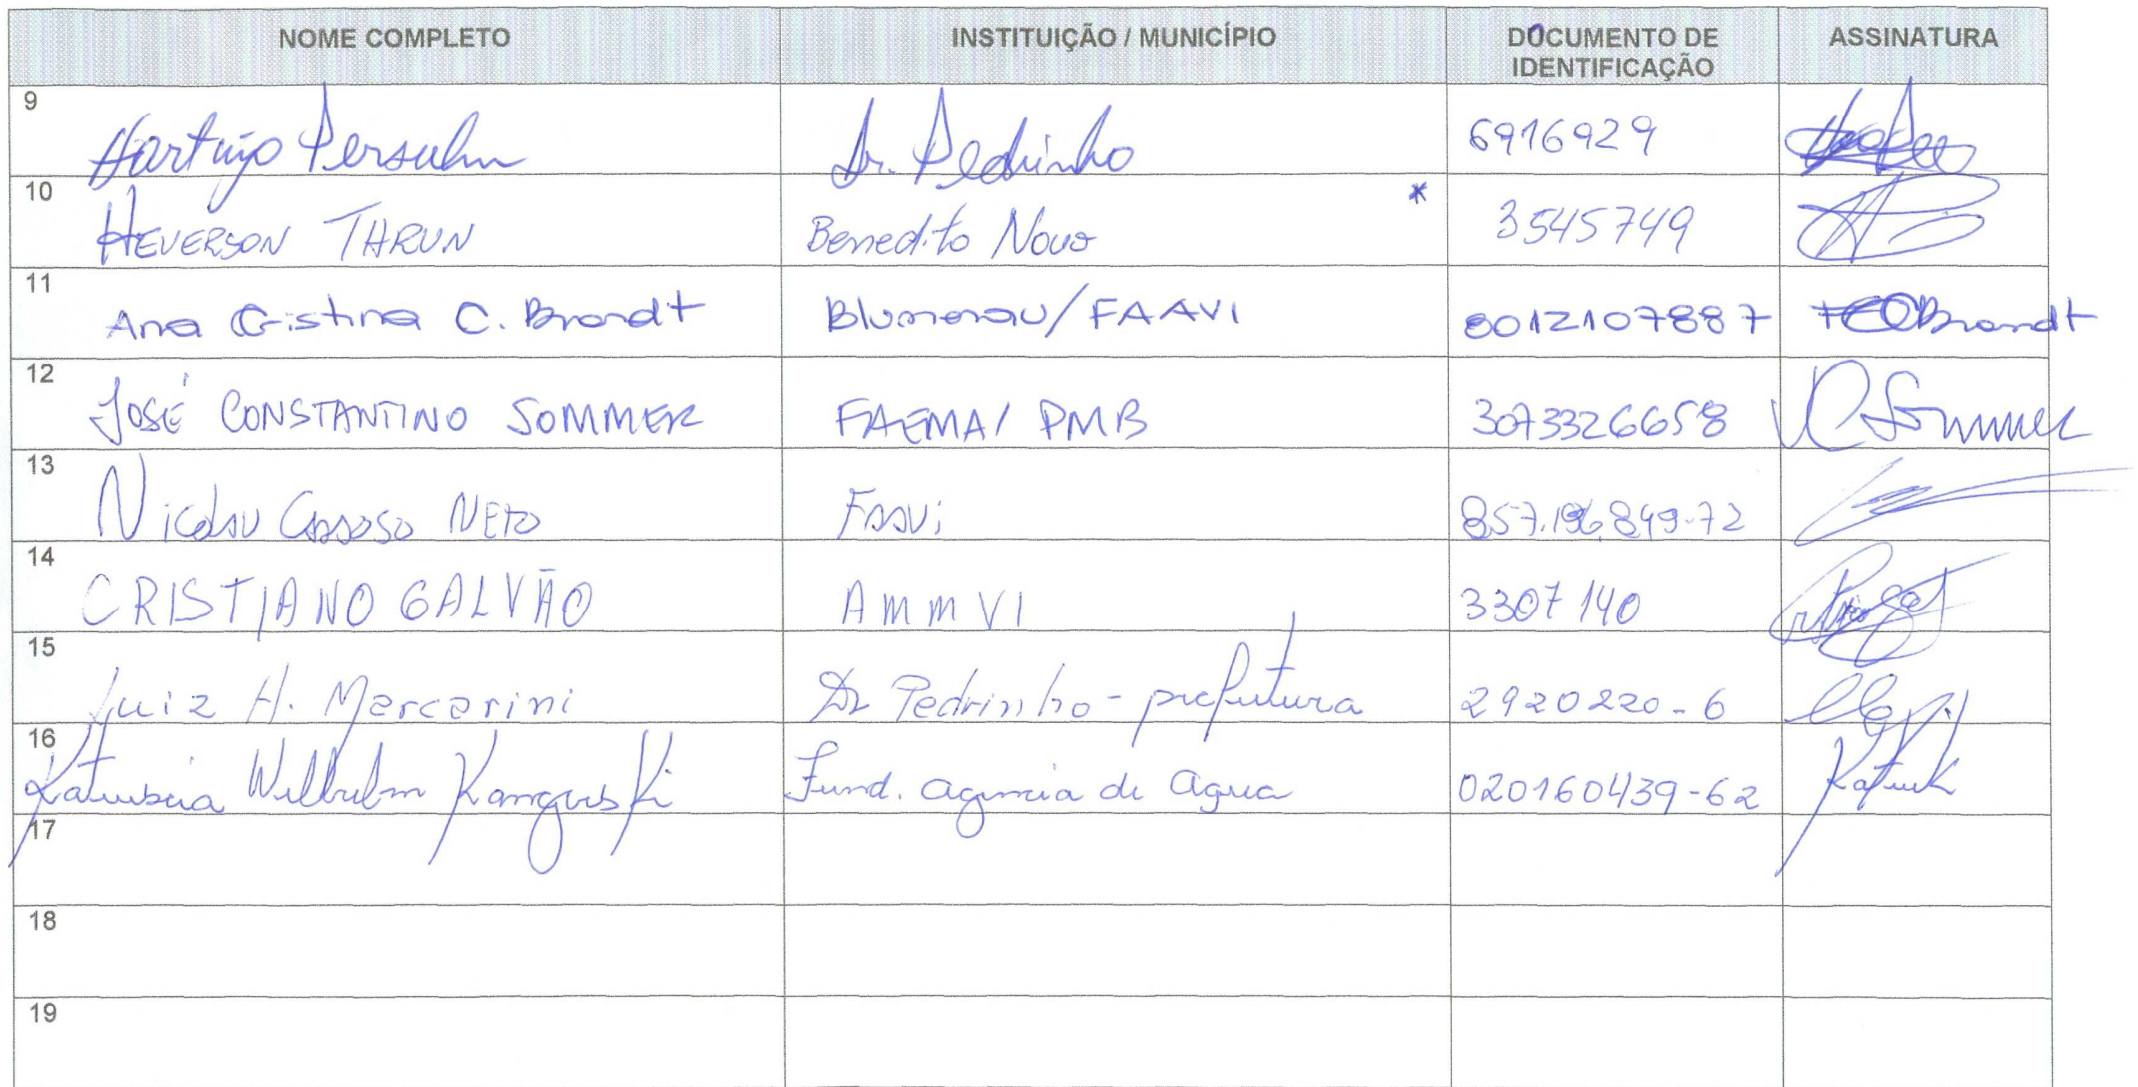 NOME COMPLETO INSTITUIÇÃO / MUNICÍPIO DOCUMENTO DE IDENTIFICAÇÃO ASSINATURA
9 Dr. Pedrinho 6916929
10 HEVERSON THRUN Benedito Novo * 3545749
11 Ana Cristina C. Brandt Blumenau/FAAVI 8012107887 Brandt
12 JOSÉ CONSTANTINO SOMMER FAEMA/ PMB 3073326658 Sommer
13 Nicolau Cardoso NETO FAAVi 857.196.849-72
14 CRISTIANO GALVÃO AMMVI 3307140
15 Luiz H. Marcarini Dr Pedrinho - prefeitura 2920220-6
16 Katiuscia Wilhelm Kangerski Fund. agencia de agua 020160439-62
17
18
19